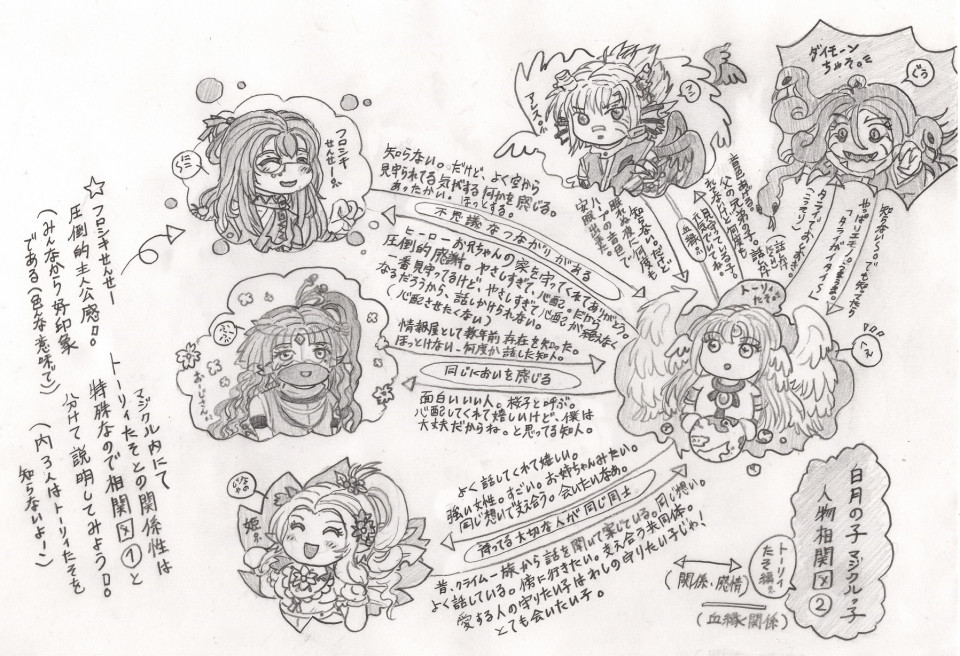 白月の子 マジクル。子
人物相関図②
トーリィ
たそ編。
(関係・感情)
(血縁関係)
☆フロシキせんせー
圧倒的主人公感!!
(みんなから好印象
である(色んな意味で))
マジクル内にて
トーリィたそとの関係性は
特殊なので相関図①と
分けて説明してみよう!!
(内3人はトーリィたそを
知らないよー)
フロシキ
せんせー。
にこにこ
知らない。だけど、よく空から
見守られてる気がする何かを感じる。
あったかい。ほっとする。
不思議なつながりがある
ヒーローお兄ちゃんの家を守ってくれてありがとう。
圧倒的感謝。やさしすぎて心配。だから
一番見守ってるけど、やさしすぎて心配が絶えなく
なるだろうから、話しかけられない。
(心配させたくない)
おじじさん。
情報屋として数年前存在を知った。
ほっとけない。何度か話した知人。
同じにおいを感じる
面白いいい人。桜子と呼ぶ。
心配してくれて嬉しいけど、僕は
大丈夫だからね。と思ってる知人。
姫。
よく話してくれて嬉しい。
強い女性。すごい。お姉ちゃんみたい。
同じ想いで支え合う。会いたいなあ。
守ってる大切な人が同じ同士
昔、クライムー族から話を聞いて案じている。同じ想い。
よく話している。傍に行きたい。支え合う共同体。
愛する人の守りたい子はわしの守りたい子じゃ!
とても会いたい子。
アレス。
知らない。だけど
眠れない夜に何度も
ハープの音色で
安眠出来た。
血縁。
父の兄弟の子。
ダイモーン
ちゃそ。
ぐう
知らない〜。でも知ってたら
やっぱりエモノ。うまうま。
「タマシイガイタイ〜」
トーリィ
たそ。